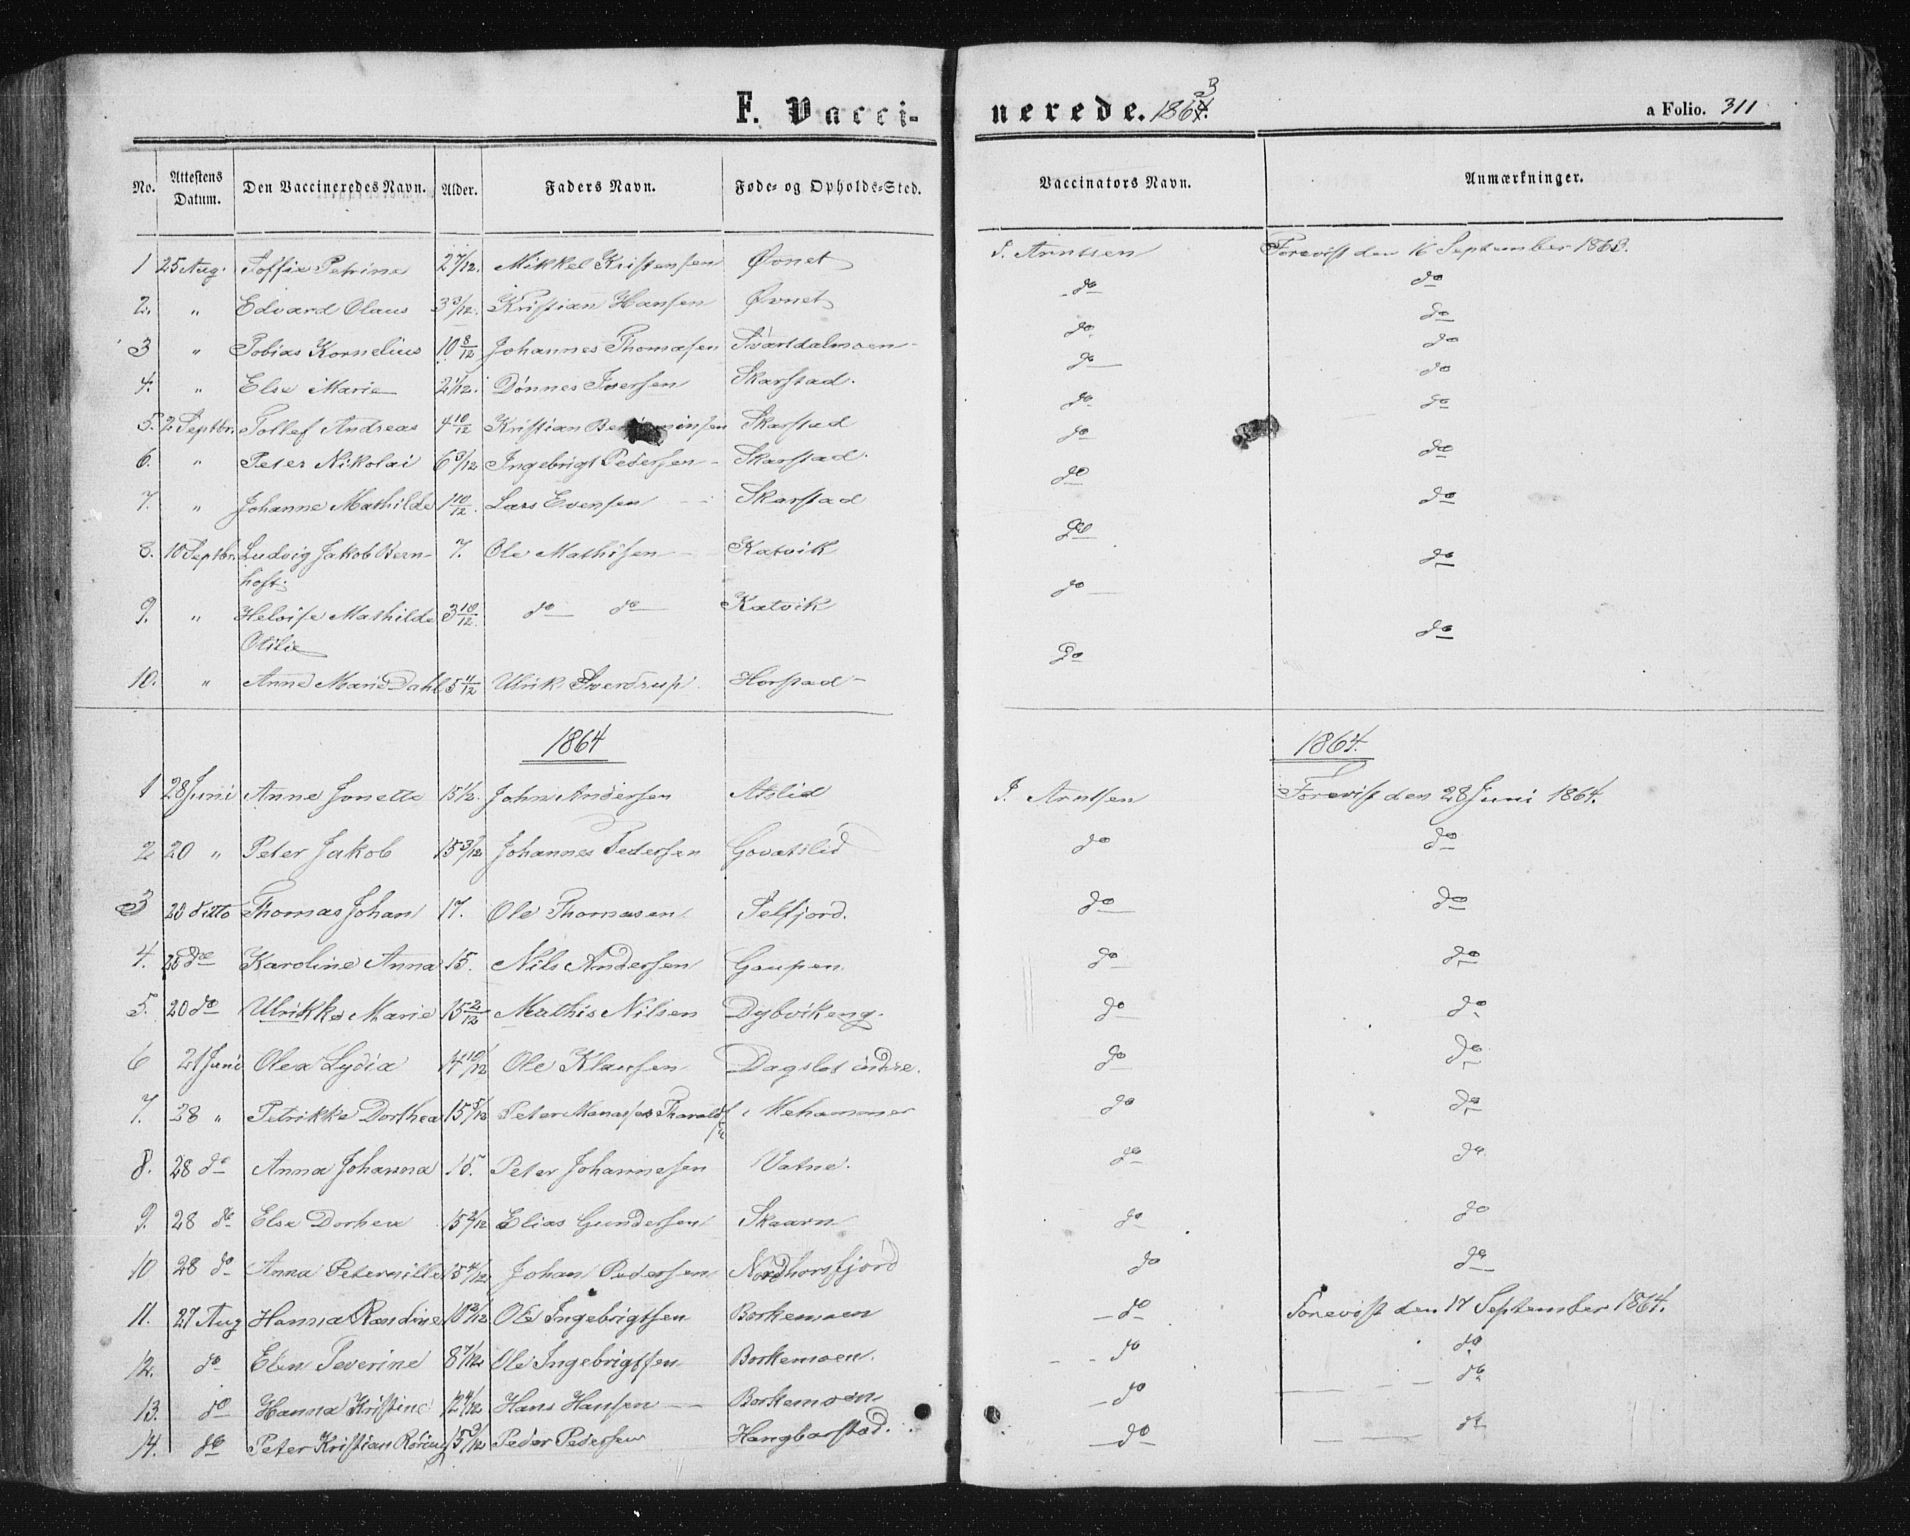 F. Vacci-nerede. 1863. a Folio. 311
No. Attestens Datum. Den Vaccineredes Navn. Alder. Faders Navn. Føde- og Opholds-Sted. Vaccinators Navn. Anmærkninger.
1 25 Aug. Soffie Petrine 2 7/12. Mikkel Kristensen Øvnet J. Arntsen Forevist den 16 September 1863.
2. " Edvard Olaus 3 3/12. Kristian Hansen Øvnet do do
3 " Tobias Kornelius 10 8/12 Johannes Thomasen Svartdalmoen do do
4. " Else Marie 2 1/12. Dønnes Iversen Skarstad. do do
5. 2 Septbr. Tollef Andreas 4 10/12 Kristian Skarstad do do
6. " Peter Nikolai 6 3/12 Ingebrigt Pedersen Skarstad. do do
7. " Johanne Mathilde 1 10/12. Lars Evensen Skarstad do do
8. 10 Septbr. Ludvig Jakob Bern- 7. Ole Mathisen Katvik do do
hoft.
9. " Heloise Mathilde 3 10/12. do do Katvik do do
Otilie
10. " Anne Marie Dahl 5 11/12 Ulrik Sverdrup. Horstad do do
1864 1864.
1 28 Juni Anne Jonette 15 1/2. John Andersen Atslid J. Arntsen Forevist den 28 Juni 1864.
2 20 " Peter Jakob 15 3/12 Johannes Pedersen Govatslid do do
3 20 ditto Thomas Johan 17. Ole Thomasen Selfjord. do do
4. 20 do Karoline Anna 15. Nils Andersen Gaupen do do
5. 20 do Ulrikke Marie 15 2/12 Mathis Nilsen Dybvikeng. do do
6 21 Juni Olea Lydia 14 10/12 Ole Klausen Dagslet indre. do do
7. 28 " Petrikke Dorthea 15 5/12 Peter Manasses Tharalds- Mehammer do do
sen
8. 28 do Anna Johanna 15. Peter Johannesen Vatne. do do
9. 28 do Else Dorhea 15 2/12 Elias Gundersen Skaarn do do
10 28 do Anna Peternille 15 4/12 Johan Pedersen Nordhorsfjord do do
11. 27 Aug Hanna Randine 10 2/12 Ole Ingebrigtsen Borkemoen do Forevist den 17 September 1864.
12. do Elen Severine 8 7/12 Ole Ingebrigtsen Borkemoen. do do
13. do Hanna Kristine 12 4/12 Hans Hansen Borkemoen do do
14. do Peter Kristian 15 Peder Pedersen do do